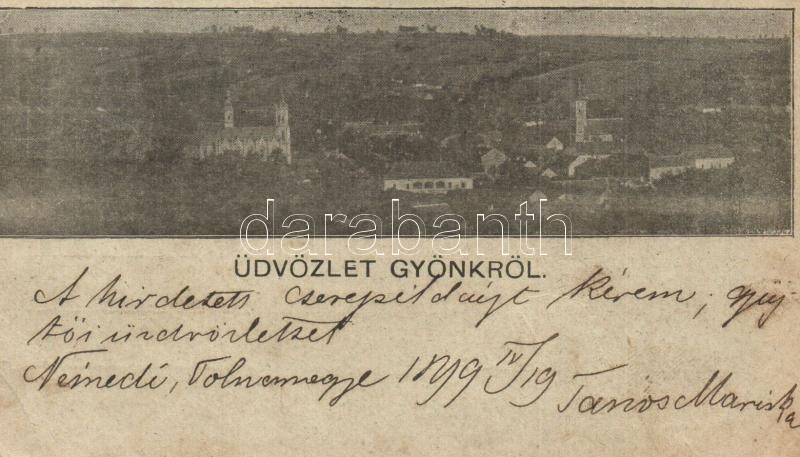 darabanth
ÜDVÖZLET GYÖNKRŐL.
A hirdetett cserepéldányt kérem, gyűj
tői üdvözlettel
Némedi, Tolnamegye 1899 IV/19
Tanos Mariska